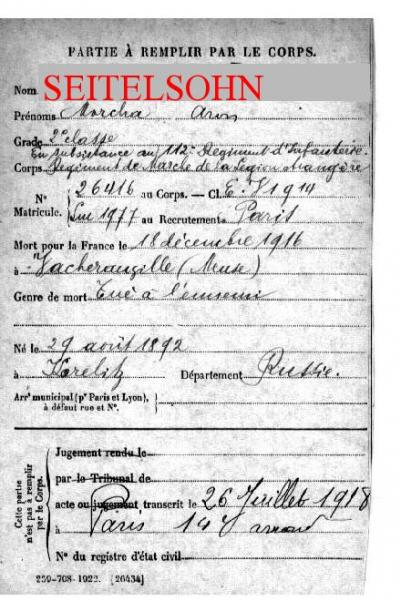 PARTIE À REMPLIR PAR LE CORPS.
Nom SEITELSOHN
Prénoms Morcha Aron
Grade 2e classe
En subsistance au 112e Régiment d'Infanterie
Corps Régiment de Marche de la Légion étrangère
N° 26416 au Corps. — Cl. E.V 1914
Matricule. 1977 au Recrutement Paris
Mort pour la France le 18 décembre 1916
à Vacherauville (Meuse)
Genre de mort Tué à l'ennemi
Né le 29 août 1892
à Korelitz Département Russie
Arrt municipal (pr Paris et Lyon), à défaut rue et N°.
Cette partie n'est pas à remplir par le Corps.
Jugement rendu le
par le Tribunal de
acte ou jugement transcrit le 26 Juillet 1918
à Paris 14e arrond
N° du registre d'état civil
259-708-1922. [26434]